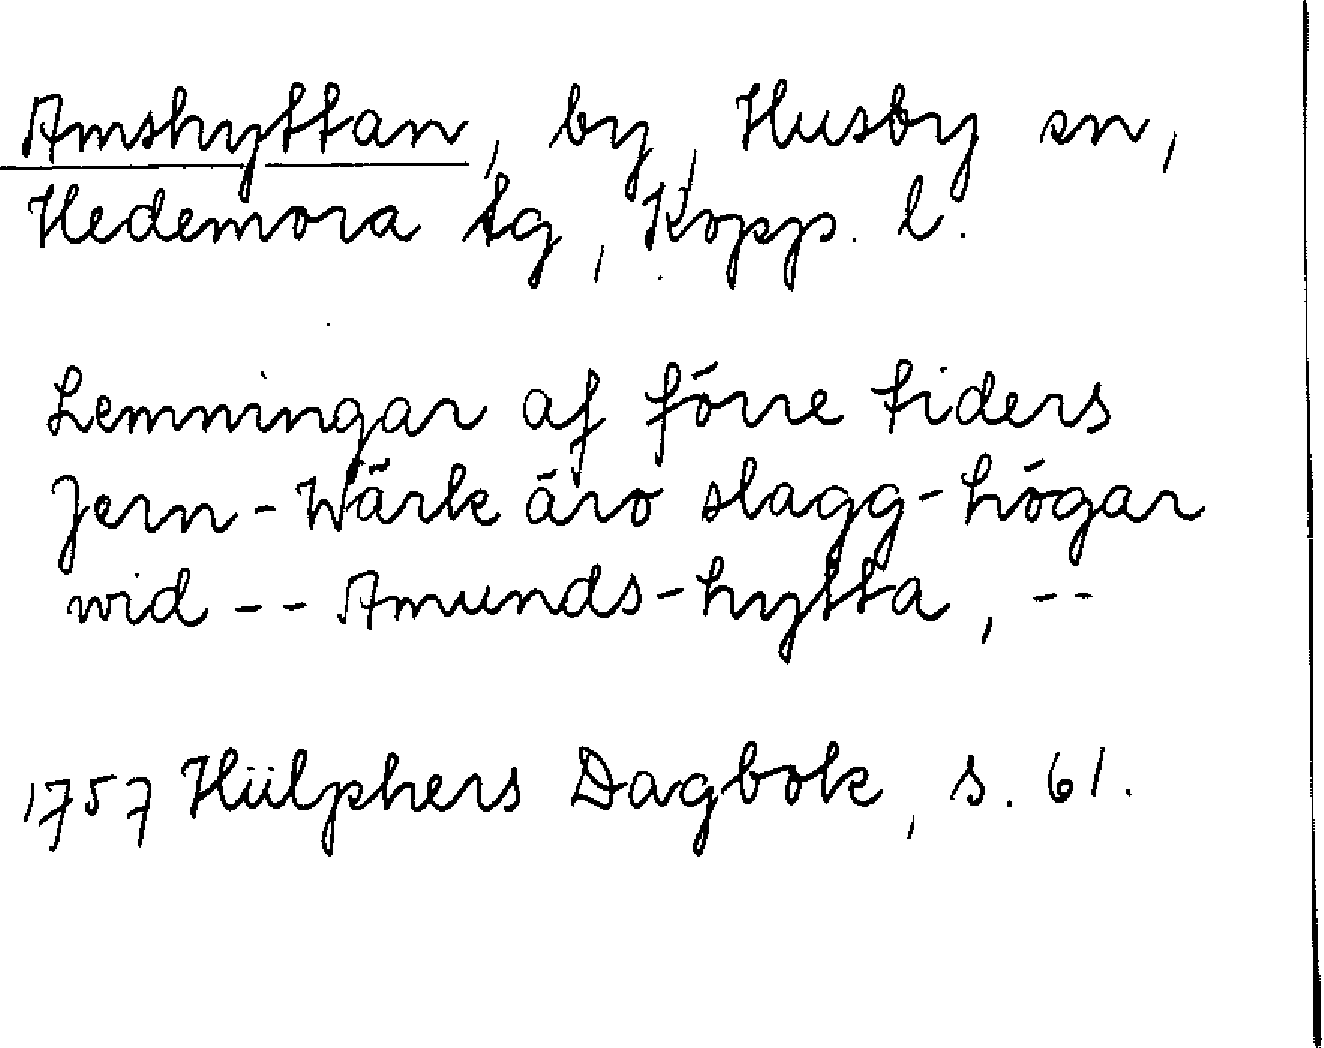 Amshyttan, by, Husby sn,
Hedemora tg, Kopp. l.
Lemningar af förre tiders
Jern-Wärk äro slagg-högar
wid -- Amunds-hytta, --
1757 Hülphers Dagbok, s. 61.